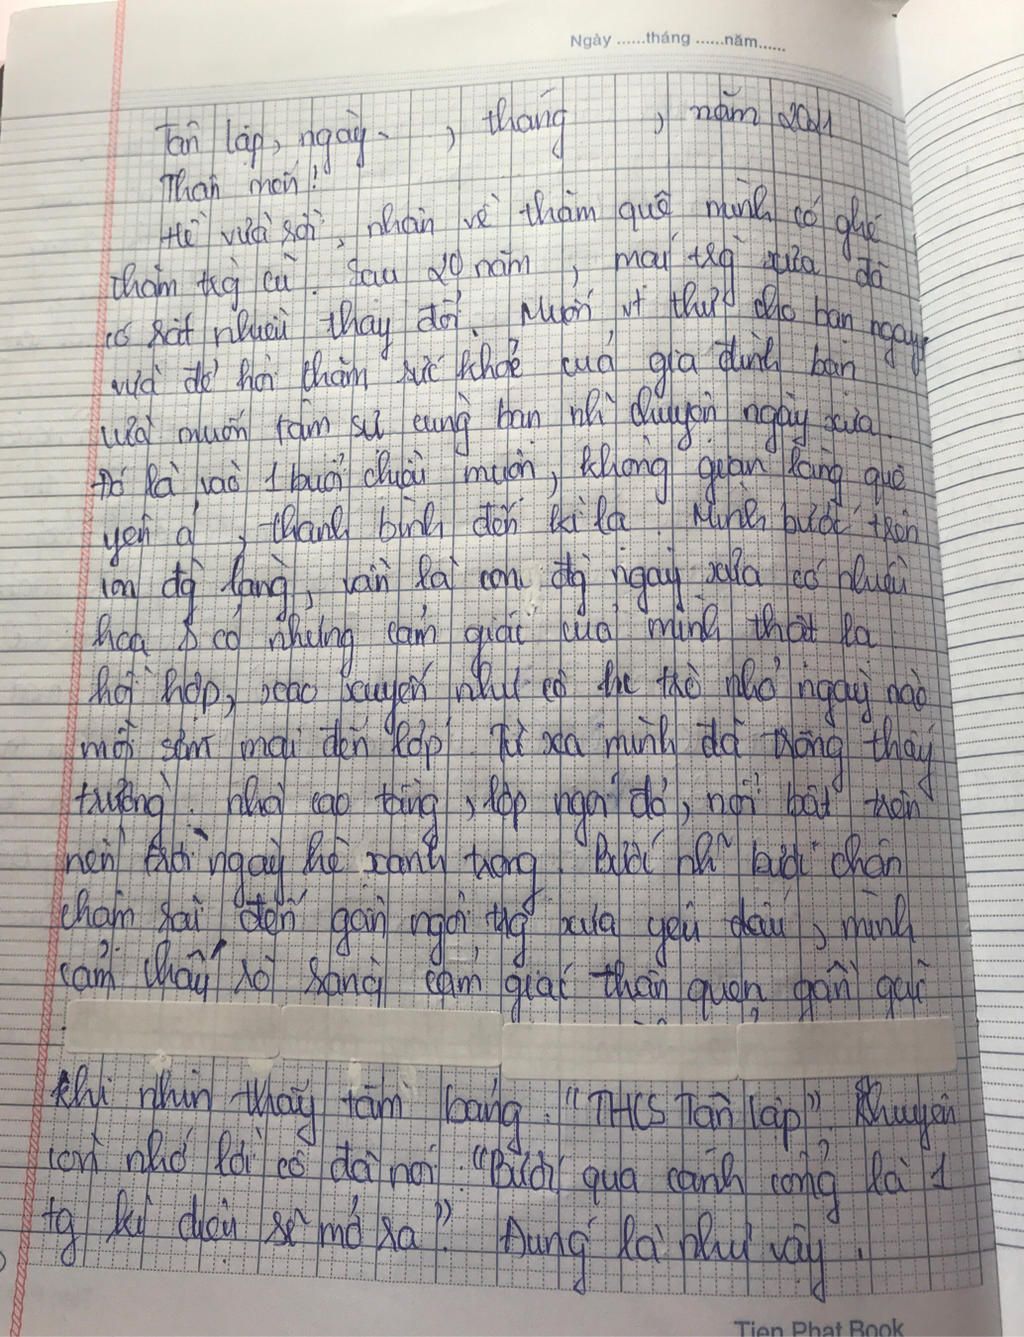 Ngày ......tháng ......năm......
Tân lập, ngày , tháng , năm 2021
Thân mến!
Hè vừa rồi, nhân về thăm quê mình có ghé
thăm trg cũ. Sau 20 năm, mái trg xưa đã
có rất nhiều thay đổi. Muốn vt thư cho bạn ngay
vừa để hỏi thăm sức khoẻ của gia đình bạn
vừa muốn tâm sự cùng bạn nh chuyện ngày xưa.
Đó là vào 1 buổi chiều muộn, không gian làng quê
yên ả, thanh bình đến kì lạ. Mình bước trên
con đg làng, vẫn là con đg ngày xưa có nhiều
hoa có những cảm giác của mình thật là
hồi hộp, xao xuyến như cô học trò nhỏ ngày nào
mỗi sớm mai đến lớp. Từ xa mình đã trông thấy
trường. nhà cao tầng, lợp ngói đỏ, nổi bật trên
nền trời ngày hè xanh trong. Bước nh bước chân
chậm rãi đến gần ngôi trg xưa yêu dấu, mình
cảm thấy rõ ràng cảm giác thân quen gần gũi
khi nhìn thấy tấm bảng "THCS Tân lập". Khuyên
còn nhớ lời cô đã nói "Bước qua cánh cổng là 1
tg kỳ diệu sẽ mở ra". Đúng là như vậy.
Tien Phat Book